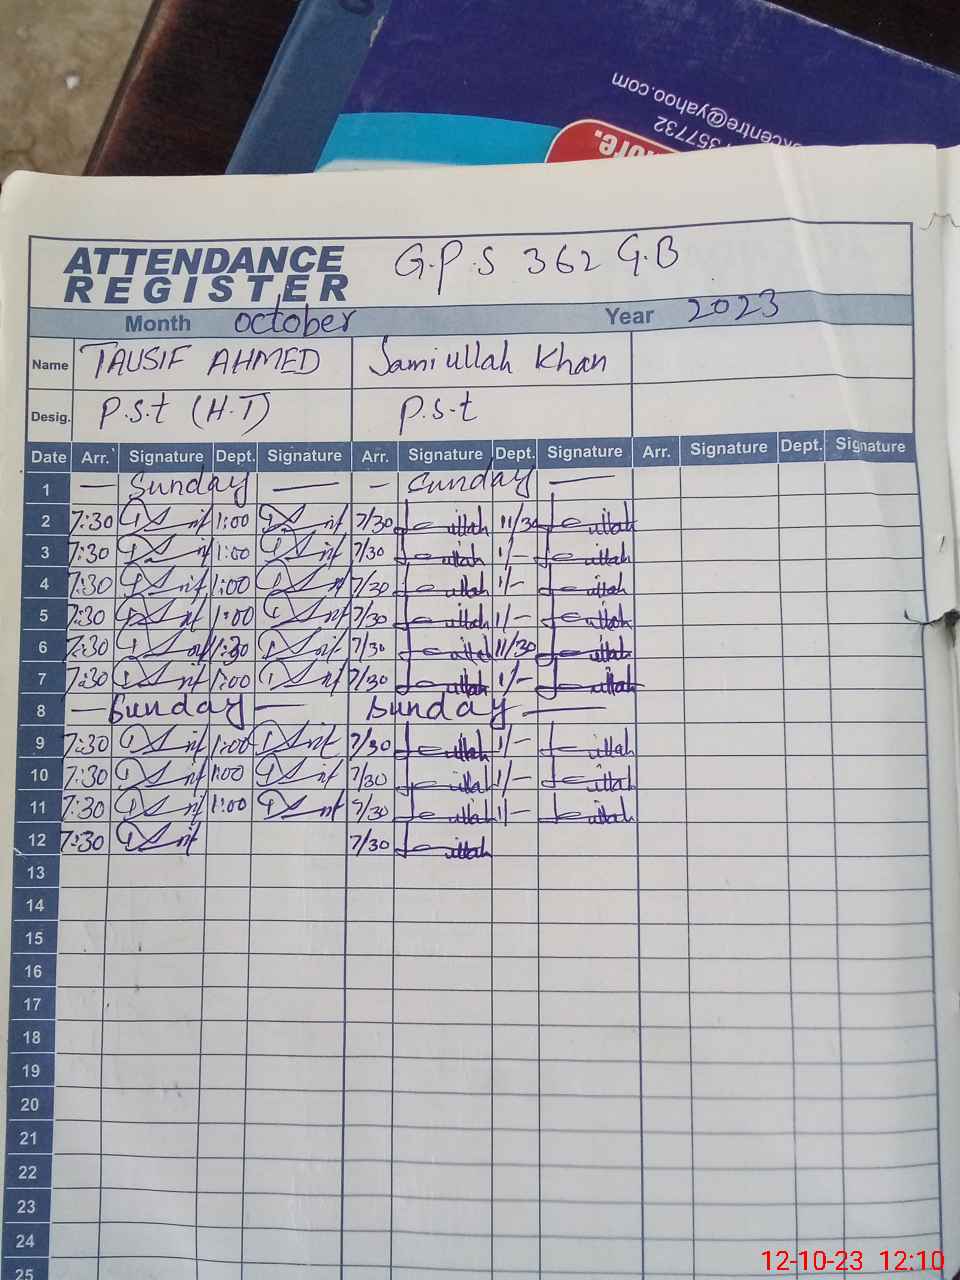 com
kcentre@yahoo.com
357732
ore.
ATTENDANCE G.P.S 362 G.B
REGISTER
Month october Year 2023
Name TAUSIF AHMED Samiullah Khan
Desig. P.S.t (H.T) P.S.t
Date Arr. Signature Dept. Signature Arr. Signature Dept. Signature Arr. Signature Dept. Signature
1 — Sunday — — Sunday —
2 7:30 1:00 7/30 ullah 11/30 ullah
3 7:30 1:00 7/30 ullah 1/- ullah
4 7:30 1:00 7/30 ullah 1/- ullah
5 7:30 1:00 7/30 ullah 1/- ullah
6 7:30 7/30 ullah 11/30 ullah
7 7:30 1:00 7/30 ullah 1/- ullah
8 — Sunday — Sunday —
9 7:30 1:00 7/30 ullah 1/- ullah
10 7:30 1:00 7/30 ullah 1/- ullah
11 7:30 1:00 7/30 ullah 1/- ullah
12 7:30 7/30 ullah
13
14
15
16
17
18
19
20
21
22
23
24
25
12-10-23 12:10